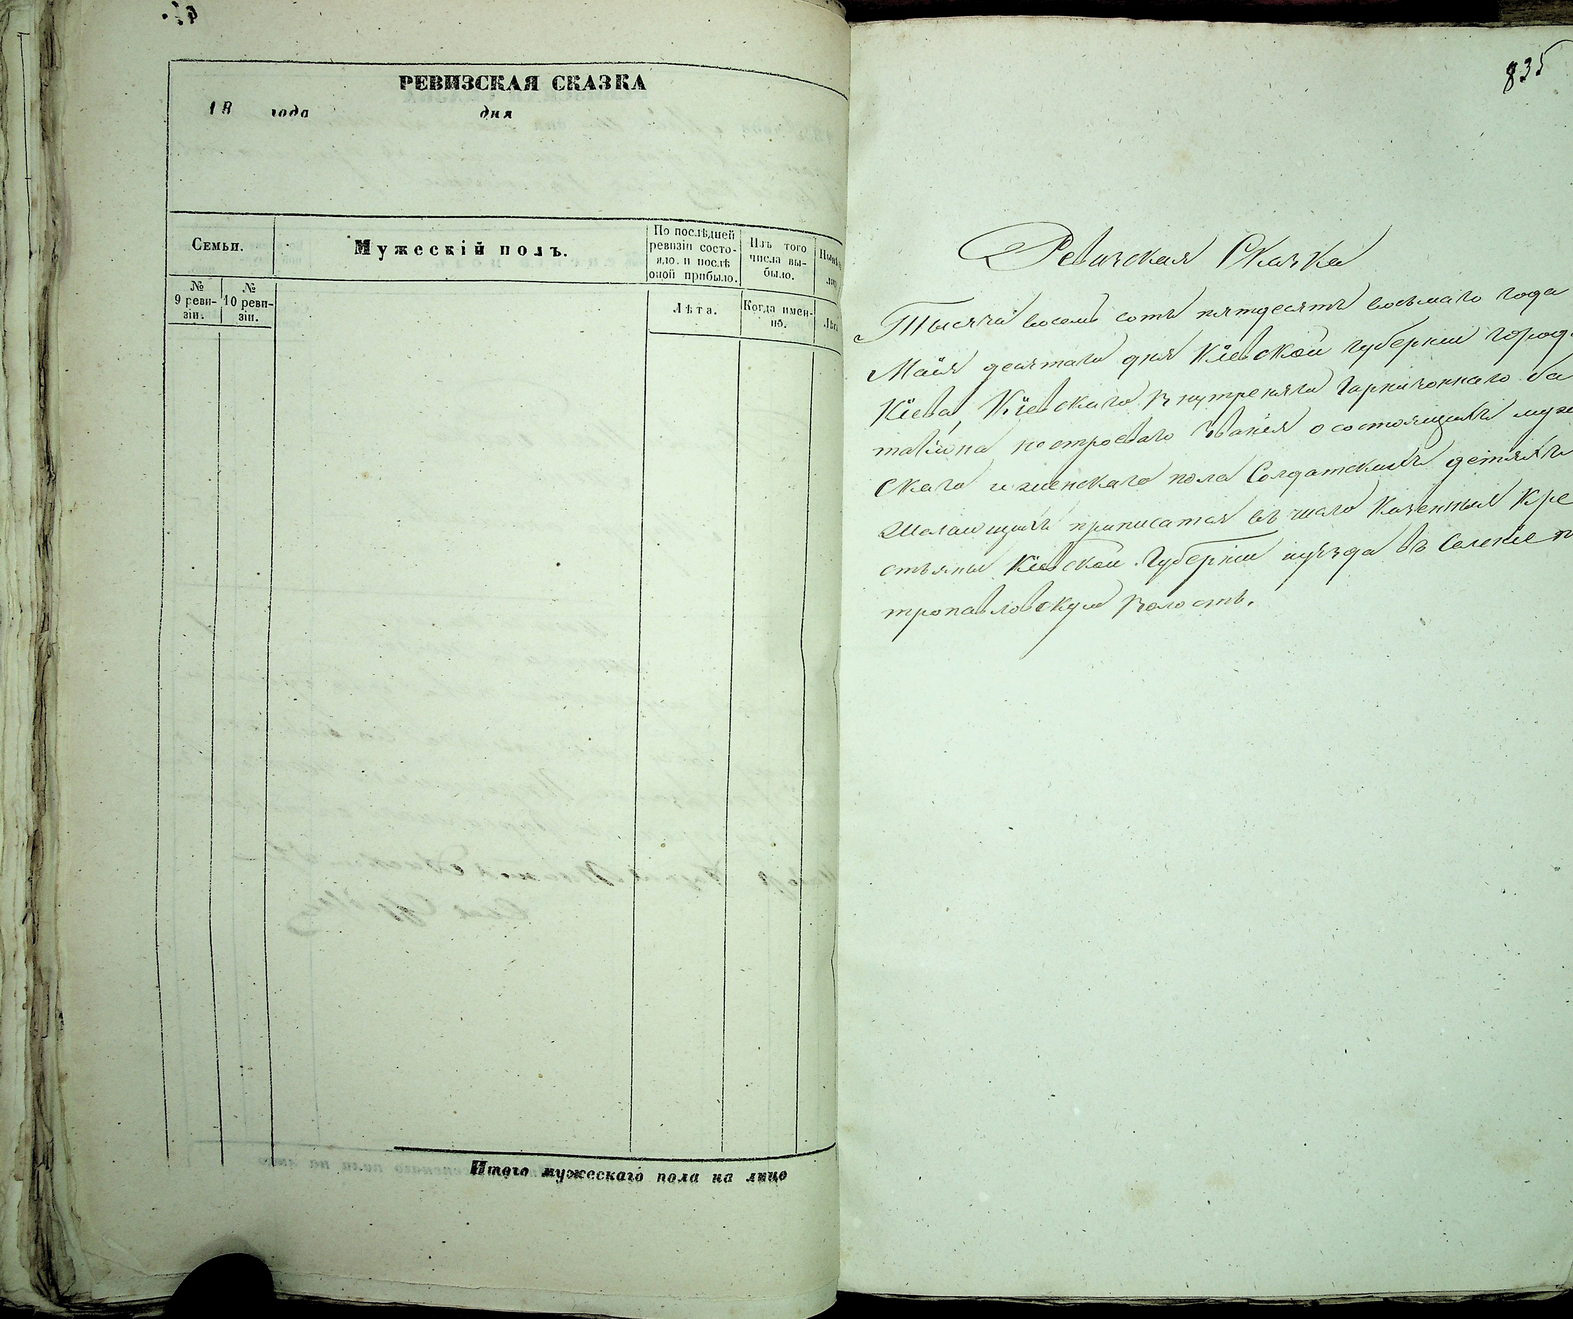 РЕВИЗСКАЯ СКАЗКА
18 года дня
Семьи.
Мужескій полъ.
По послѣдней ревизіи состояло. и послѣ оной прибыло.
Изъ того числа выбыло.
№ 9 ревизіи.
№ 10 ревизіи.
Лѣта.
Когда именно.
Итого мужескаго пола на лицо
835
Ревизская Сказка
Тысяча восемь сотъ пятдесятъ восьмаго года
Маія десятаго дня Кіевской губерніи город
Кіева, Кіевскаго Внутренняго Гарнизоннаго ба
таліона нестроеваго званія о состоящихъ муже
скаго и женскаго пола Солдатскихъ детяхъ
желающихъ приписатся въ число Казенныя Кре
стьяны Кіевской Губерніи иуѣзда въ Селеніе п
тропавловскую Волость.